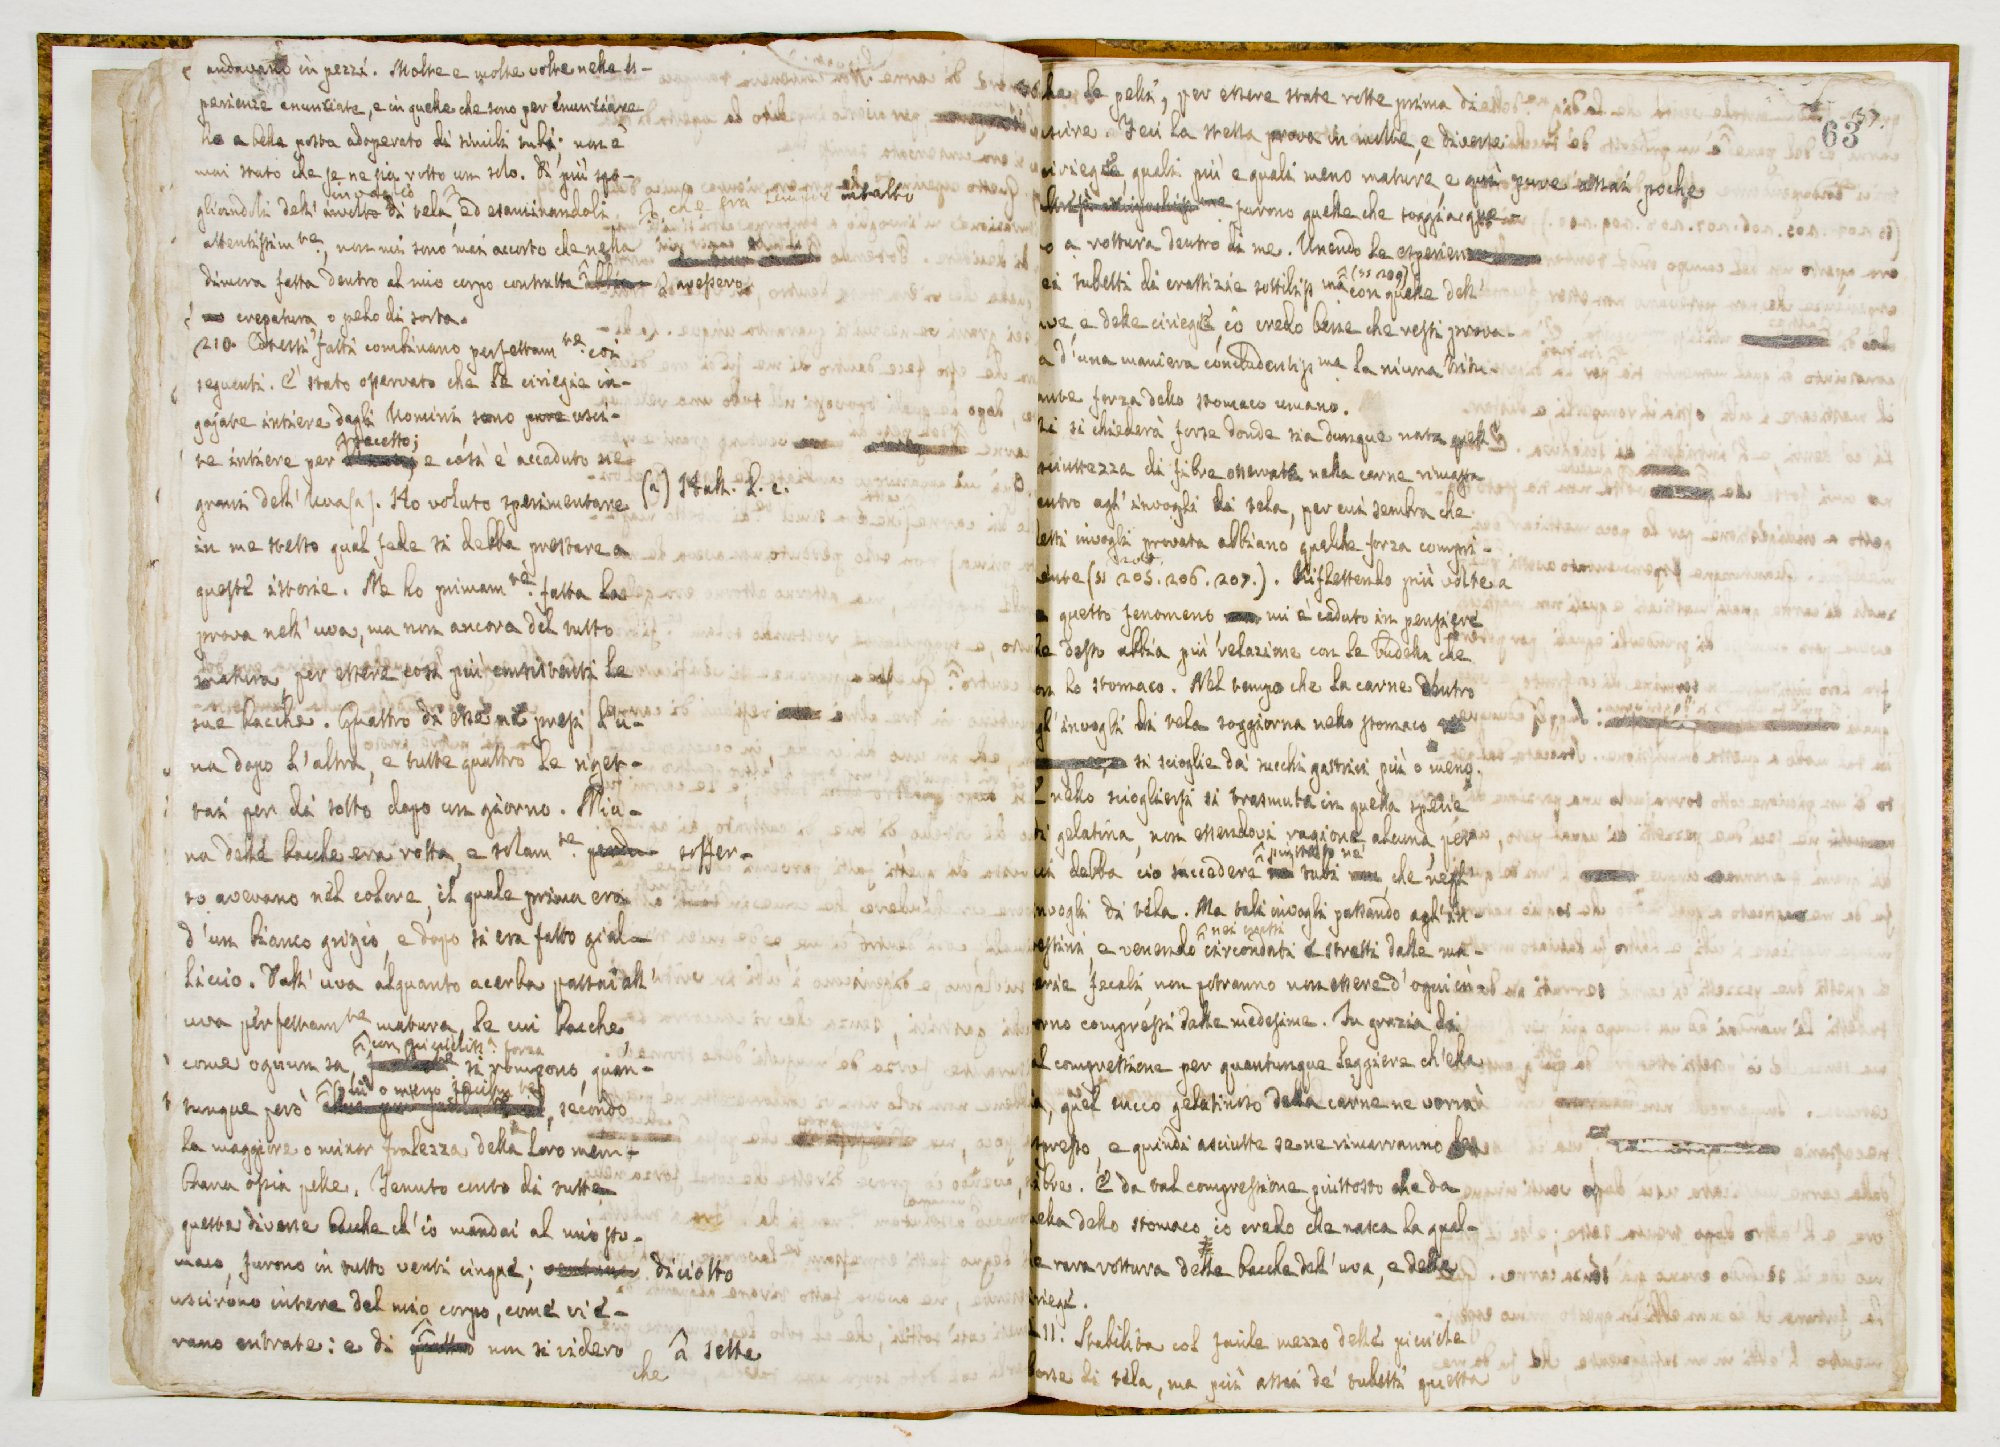 andavano in pezzi. Molte e molte volte nelle es-
perienze enunciate, e in quelle che sono per enunciare
ho a bella posta adoperato di simili tubi; non è
mai stato che se ne sia rotto un solo. Di più spo-
gliandoli dell' involto di tela, ed esaminandoli
attentissim.te, non mi sono mai accorto che nella
dimora fatta dentro al mio corpo contratta avessero
crepatura o pelo di sorta.
210. Questi fatti combinano perfettam.te coi
seguenti. È stato osservato che le ciriegie in-
gojate intiere dagli Uomini sono pure usci-
te intiere per secesso; e così è accaduto ne
grani dell' Uva (a). Ho voluto sperimentare
(a) Hall. l. c.
in me stesso qual fede si debba prestare a
queste istorie. Ne ho primam.te fatta la
prova nell' uva, ma non ancora del tutto
matura per essere così più consistenti le
sue bacche. Quattro di esse ne presi l'u-
na dopo l'altra, e tutte quattro le riget-
tai per di sotto dopo un giorno. Niu-
na delle bacche era rotta, e solam.te soffer-
to avevano nel colore, il quale prima era
d'un bianco grigio, e dopo si era fatto gial-
liccio. Dall' uva alquanto acerba passai all'
uva perfettam.te matura, le cui bacche
come ognun sa, con piccoliss.a forza si rompono, quan-
tunque però più o meno facilm.te, secondo
la maggiore o minor fralezza della loro mem-
brana ossia pelle. Tenuto conto di tutte
queste diverse bacche ch' io mandai al mio sto-
maco, furono in tutto venti cinque; diciotto
uscirono intere del mio corpo, come vi e-
rano entrate: e di sette non si videro
che
63
37.
che le pelli, per essere state rotte prima di
uscire. Feci la stessa prova in molte, e diverse
ciriegie quali più e quali meno mature, e qui pure assai poche
furono quelle che soggiacque-
ro a rottura dentro di me. Unendo le esperienze
dei tubetti di grossezze sottiliss.me (§ 209) con quelle dell'
uve e delle ciriegie io credo bene che resti prova-
ta d'una maniera concludentiss.ma la niuna tritu-
rante forza dello stomaco umano.
Mi si chiederà forse donde sia dunque nata quella
asciuttezza di fibre osservata nella carne rimasta
dentro agl' invogli di tela, per cui sembra che
detti invogli provata abbiano qualche forza compri-
mente (§ 205. 206. 207.). Riflettendo più volte a
a questo fenomeno mi è caduto in pensiere
che desso abbia più relazione con le budella che
con lo stomaco. Nel tempo che la carne dentro
agl' invogli di tela soggiorna nello stomaco
si scioglie dai succhi gastrici più o meno.
E nello sciogliersi si trasmuta in quella spezie
di gelatina, non essendovi ragione alcuna, per
cui debba ciò succedere piuttosto ne' tubi che negl'
invogli di tela. Ma tali invogli passando agl' in-
testini, e venendo circondati e stretti dalle ma-
terie fecali, non potranno non essere d' ogni in-
torno compressi dalle medesime. In grazia di
tal compressione per quantunque leggiere ch' ella
sia, quel succo gelatinoso della carne ne verrà
spresso, e quindi asciutte se ne rimarranno le
fibre. È da tal compressione piuttosto che da
quella dello stomaco io credo che nasca la qual-
che rara rottura delle bacche dell' uva, e delle
ciriegie.
211. Stabilita col facile mezzo delle picciole
borse di tela, ma più assai de' tubetti questa